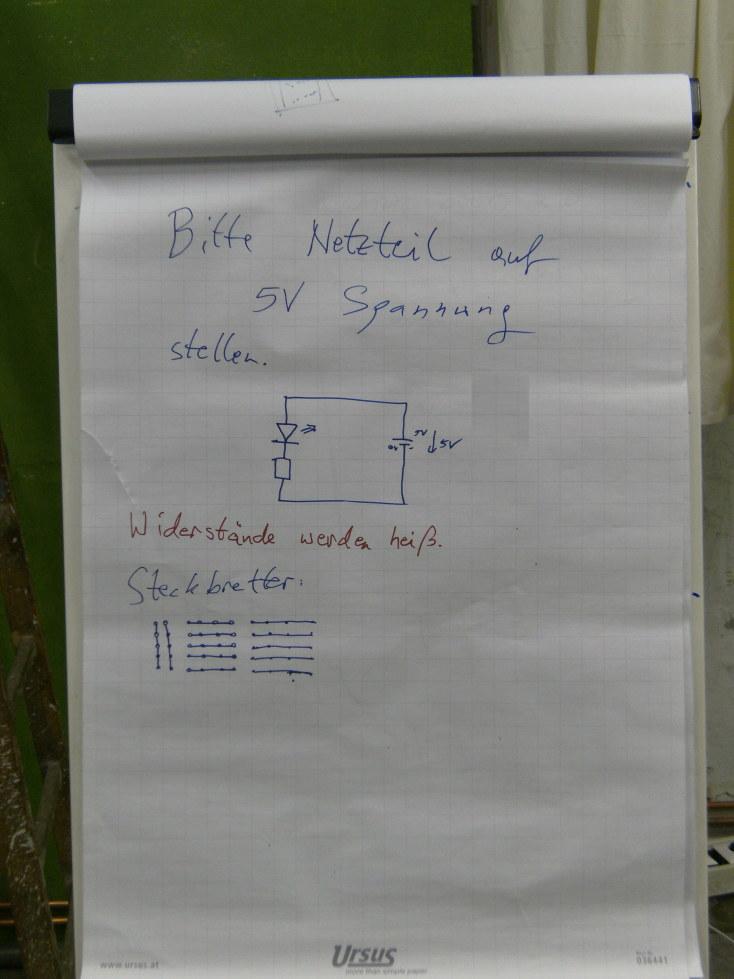 Bitte Netzteil auf
5V Spannung
stellen.
5V
Widerstände werden heiß.
Steckbretter:
www.ursus.at
Ursus
more than simple paper
036441